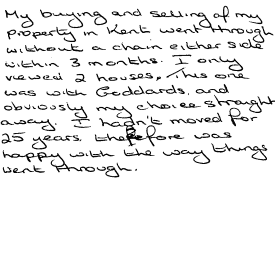 My buying and selling of my
property in Kent went through
without a chain either side
within 3 months. I only
viewed 2 houses, this one
was with Goddards, and
obviously my choice straight
away. I hadn't moved for
25 years, therefore was
happy with the way things
went through.